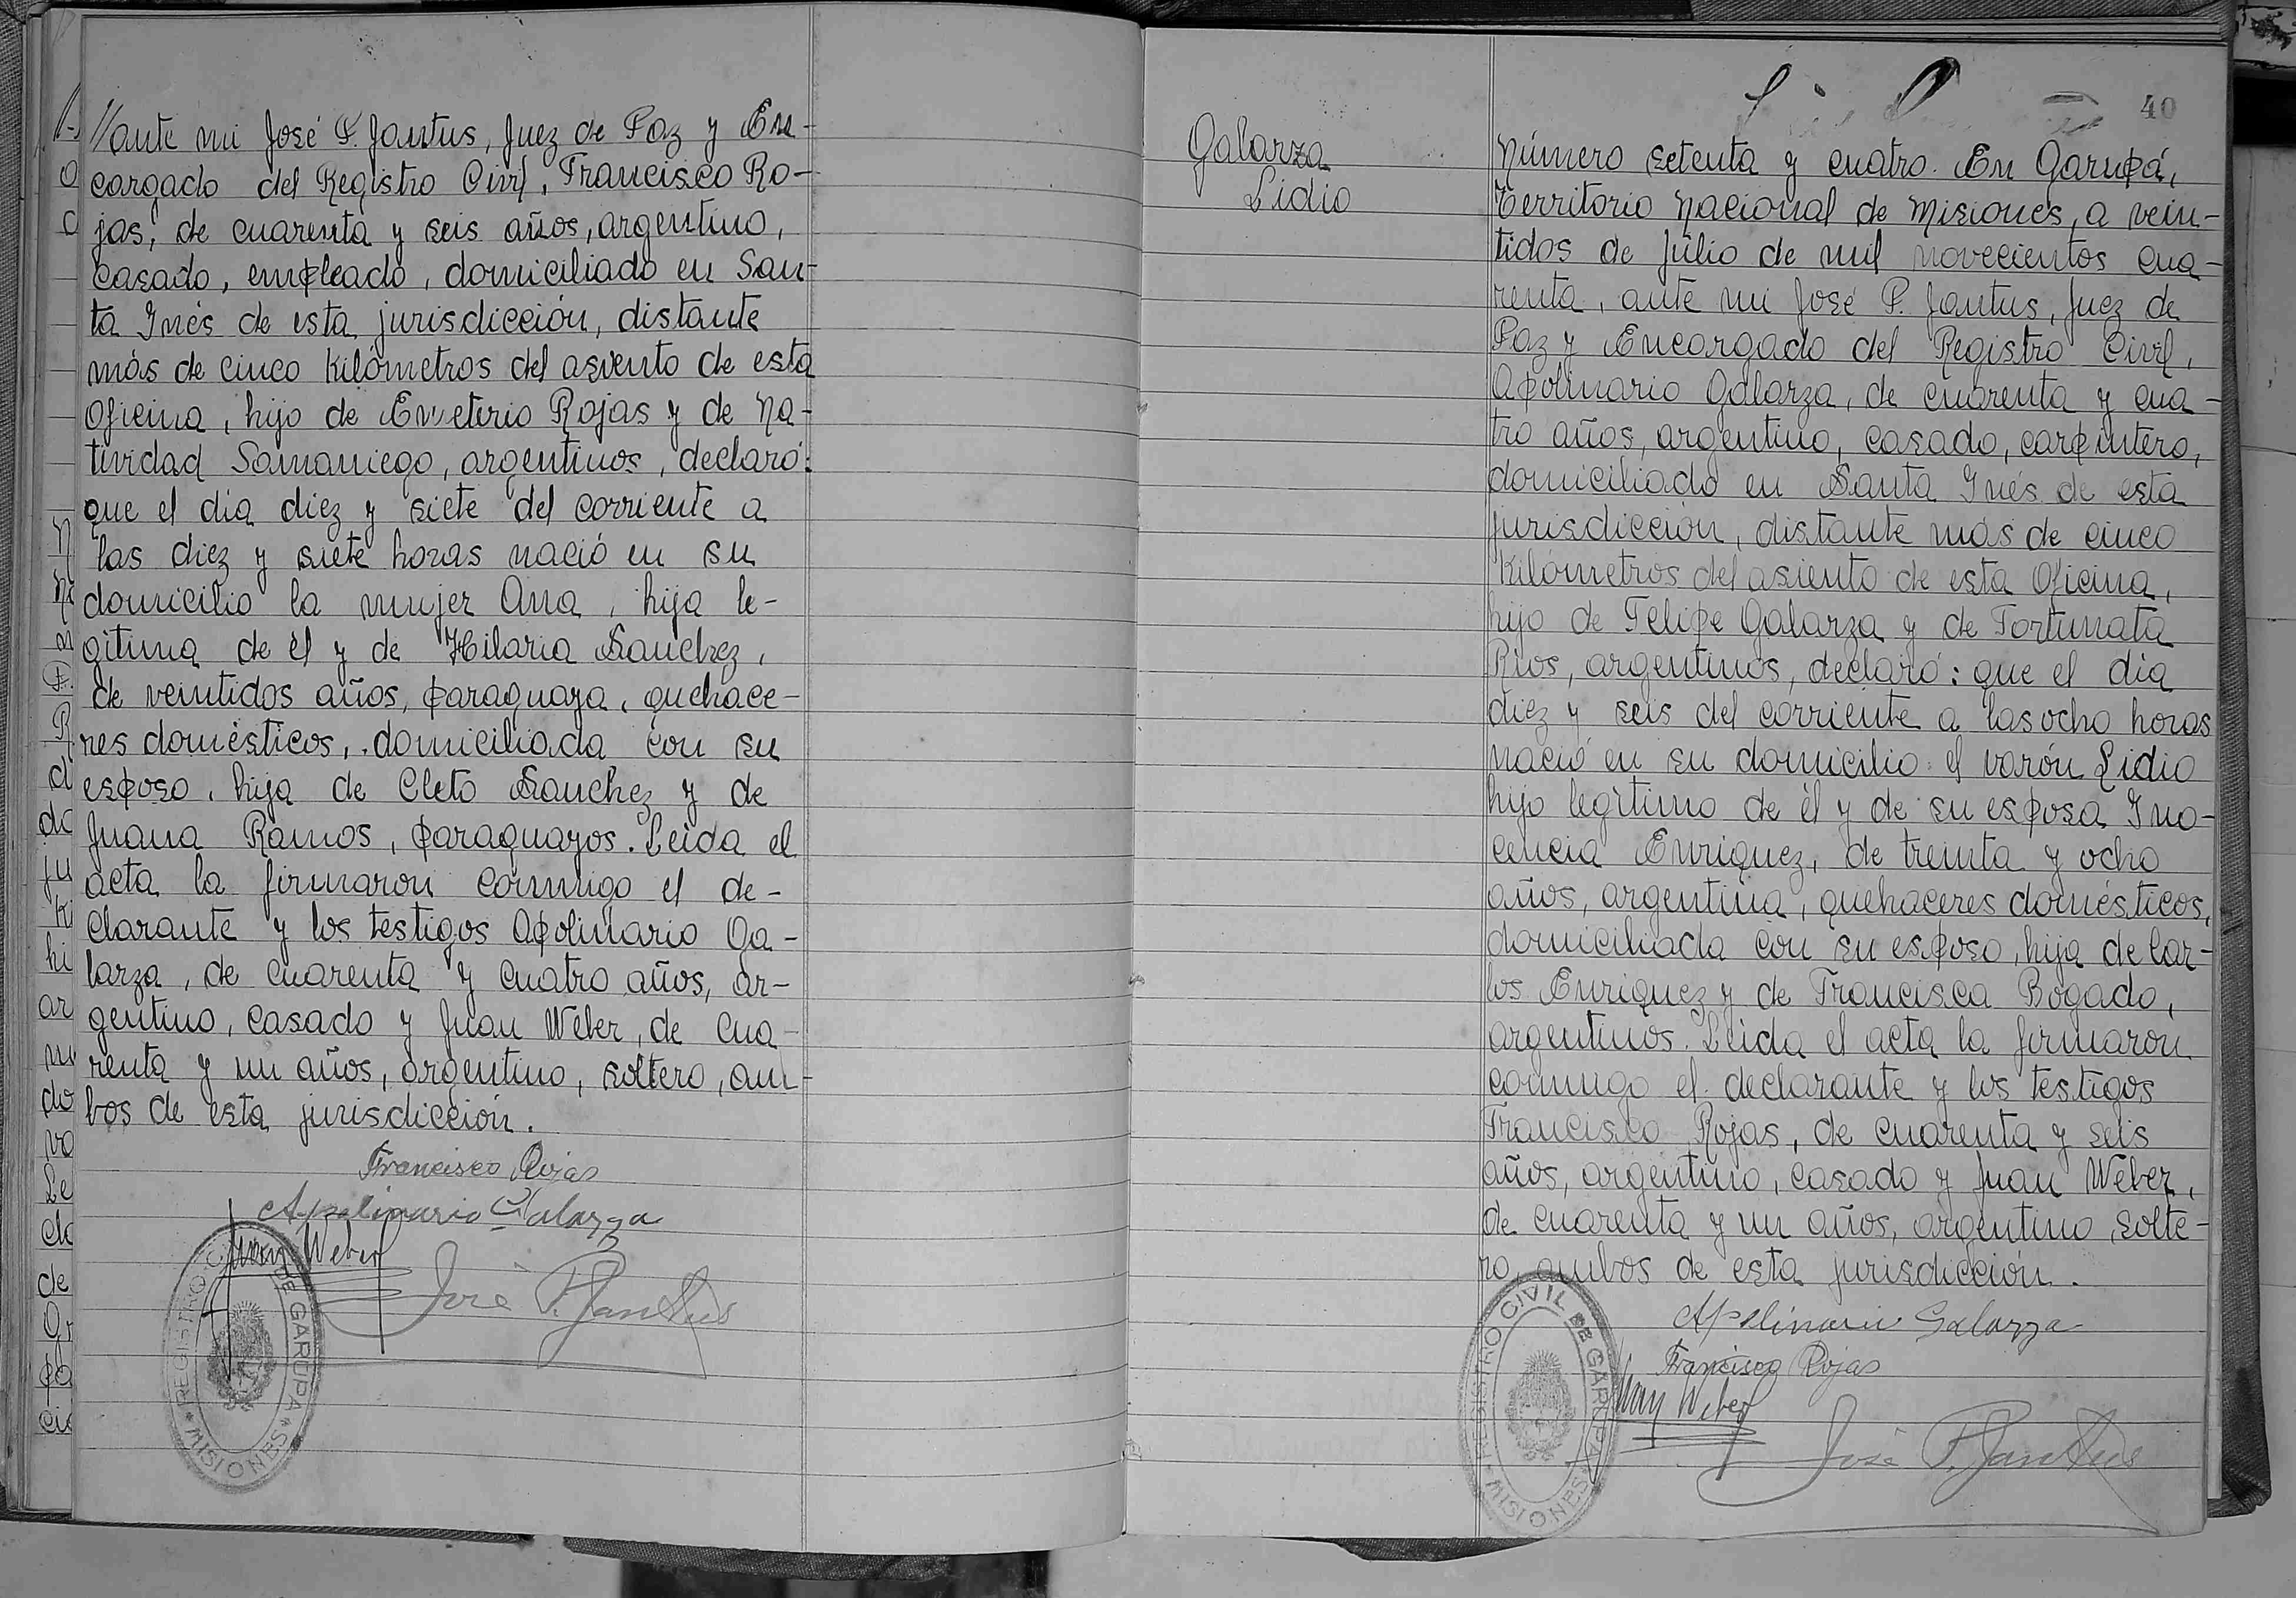 //ante mi José P. Jantus, Juez de Paz y En-
cargado del Registro Civil, Francisco Ro-
jas, de cuarenta y seis años, argentino,
casado, empleado, domiciliado en San-
ta Inés de esta jurisdicción, distante
más de cinco kilómetros del asiento de esta
Oficina, hijo de Emeterio Rojas y de Na-
tividad Samaniego, argentinos, declaró:
que el día diez y siete del corriente a
las diez y siete horas nació en su
domicilio la mujer Ana, hija le-
gítima de él y de Hilaria Sanchez,
de veintidos años, paraguaya, quehace-
res domésticos, domiciliada con su
esposo, hija de Cleto Sanchez y de
Juana Ramos, paraguayos. Leída el
acta la firmaron conmigo el de-
clarante y los testigos Apolinario Ga-
larza, de cuarenta y cuatro años, ar-
gentino, casado y Juan Weber, de cua-
renta y un años, argentino, soltero, am-
bos de esta jurisdicción.
Francisco Rojas
Apolinario Galarza
Juan Weber
José P. Jantus
REGISTRO CIVIL DE GARUPA
* MISIONES *
40
Galarza
Lidio
Número setenta y cuatro. En Garupá,
Territorio Nacional de Misiones, a vein-
tidos de Julio de mil novecientos cua-
renta, ante mi José P. Jantus, Juez de
Paz y Encargado del Registro Civil,
Apolinario Galarza, de cuarenta y cua-
tro años, argentino, casado, carpintero,
domiciliado en Santa Inés de esta
jurisdicción, distante más de cinco
kilómetros del asiento de esta Oficina,
hijo de Felipe Galarza y de Fortunata
Rios, argentinos, declaró: que el día
diez y seis del corriente a las ocho horas
nació en su domicilio el varón Lidio
hijo legítimo de él y de su esposa Ino-
cencia Enriquez, de treinta y ocho
años, argentina, quehaceres domésticos,
domiciliada con su esposo, hija de Car-
los Enriquez y de Francisca Bogado,
argentinos. Leida el acta la firmaron
conmigo el declarante y los testigos
Francisco Rojas, de cuarenta y seis
años, argentino, casado y Juan Weber,
de cuarenta y un años, argentino, solte-
ro, ambos de esta jurisdicción.
Apolinario Galarza
Francisco Rojas
Juan Weber
José P. Jantus
REGISTRO CIVIL DE GARUPA
* MISIONES *